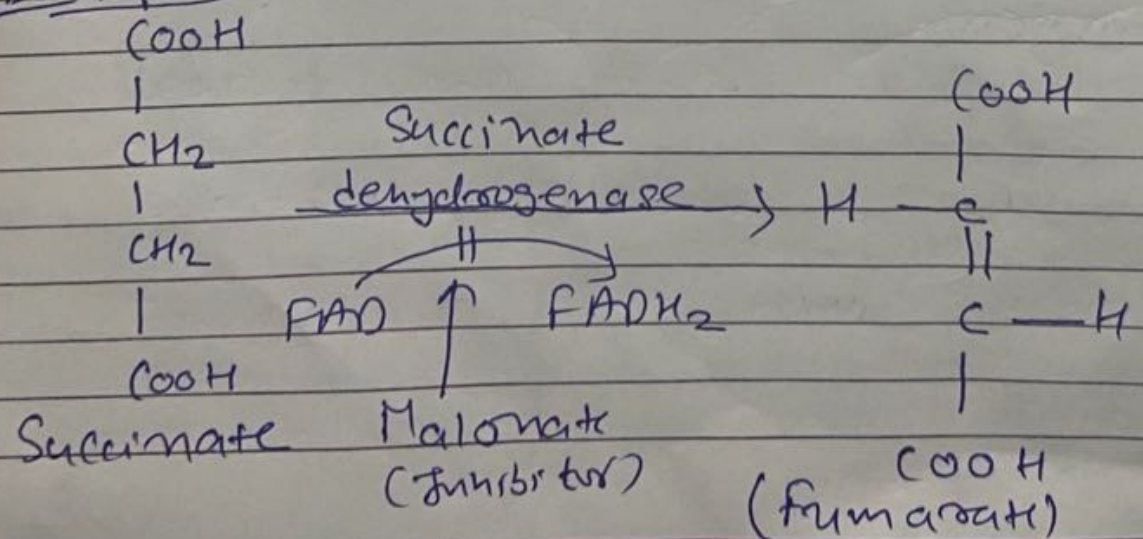 COOH
|
CH2
|
CH2
|
COOH
Succinate
Succinate
dehydrogenase
FAD
FADH2
Malonate
(Inhibitor)
COOH
|
H — C
||
C — H
|
COOH
(fumarate)